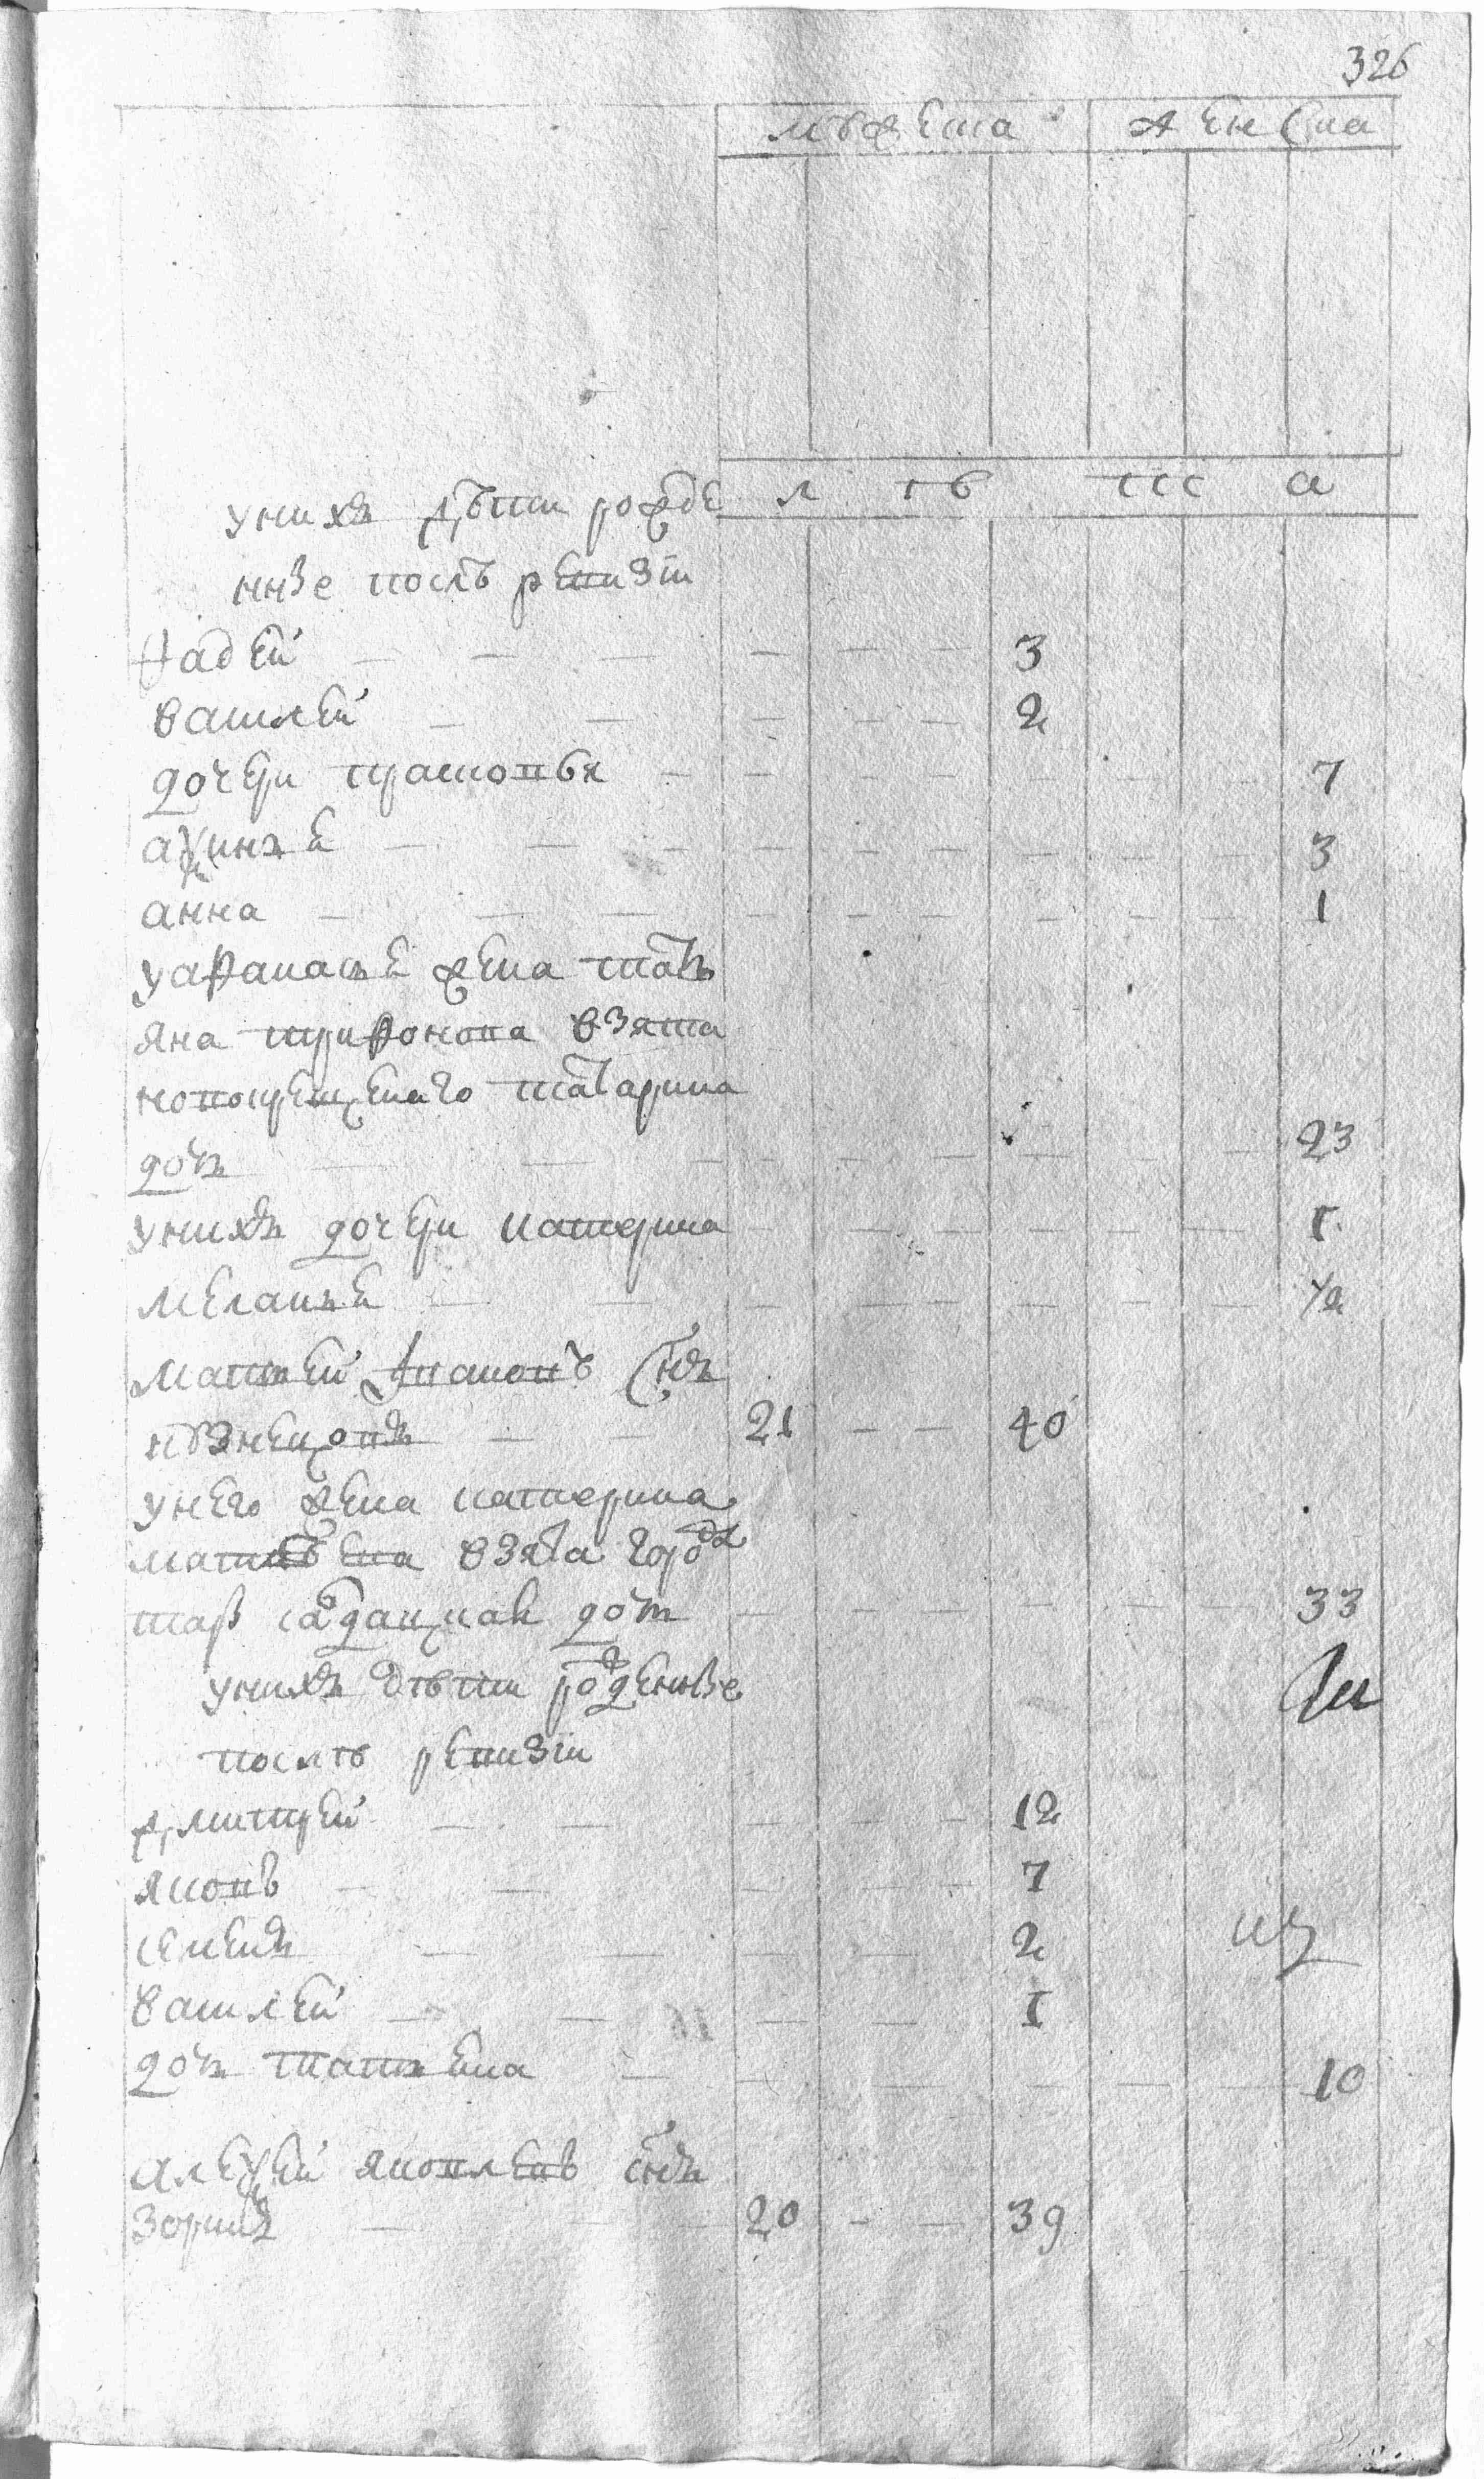 326
мужеска женска
л ѣ т а
у нихъ дѣти рожде
нные послѣ ревизiи
Фадей 3
Василей 2
дочери прасковья 7
аксинья 3
анна 1
у афанасья жена тать
яна трифонова взята
новокрещенаго татарина
дочь 23
у нихъ дочери катерина 1
меланья ½
матвей яковлевъ снъ
кузнецовъ 21 40
у него жена катерина
матвѣева взята города
дочь 33
у нихъ дѣти рожденные
послѣ ревизiи
дмитрей 12
яковъ 7
семенъ 2
василей 1
дочь татьяна 10
алексей яковлевъ снъ
зоринъ 20 39